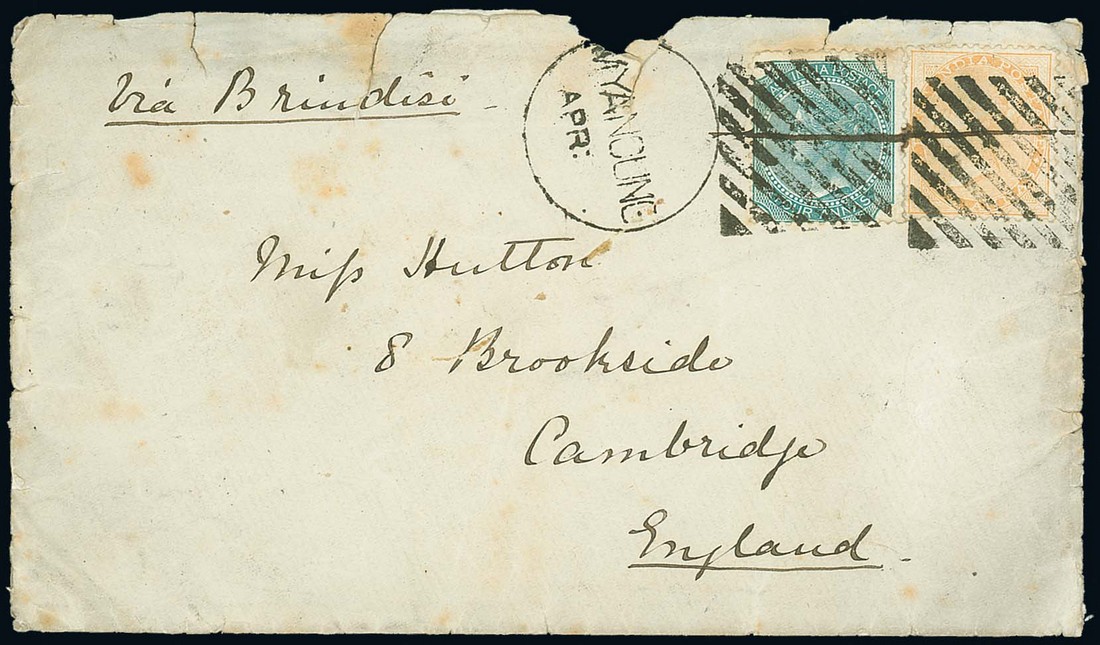 Via Brindisi
MYANOUNG
APR:
INDIA POSTAGE
FOUR ANNAS
INDIA PO
Miss Hutton
8 Brookside
Cambridge
England